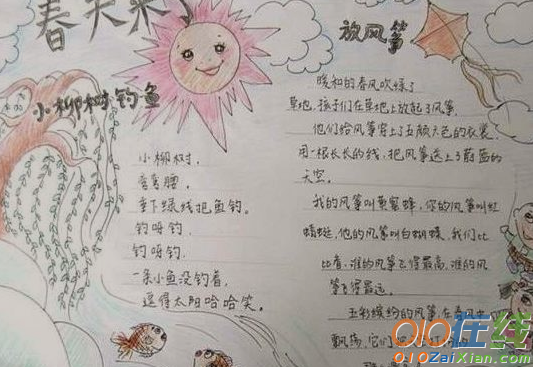 春天来
小柳树钓鱼
小柳树，
弯弯腰，
垂下绿线把鱼钓。
钓呀钓，
钓呀钓，
一条小鱼没钓着，
逗得太阳哈哈笑。
放风筝
暖和的春风吹绿了
草地，孩子们在草地上放起了风筝。
他们给风筝穿上了五颜六色的衣裳，
用一根长长的线，把风筝送上了蔚蓝的
天空。
我的风筝叫黄蜜蜂，你的风筝叫红
蜻蜓，他的风筝叫白蝴蝶，我们比
比看，谁的风筝飞得最高，谁的风
筝飞得最远。
五彩缤纷的风筝，在春风中
飘荡，它们
010在线
010ZaiXian.com